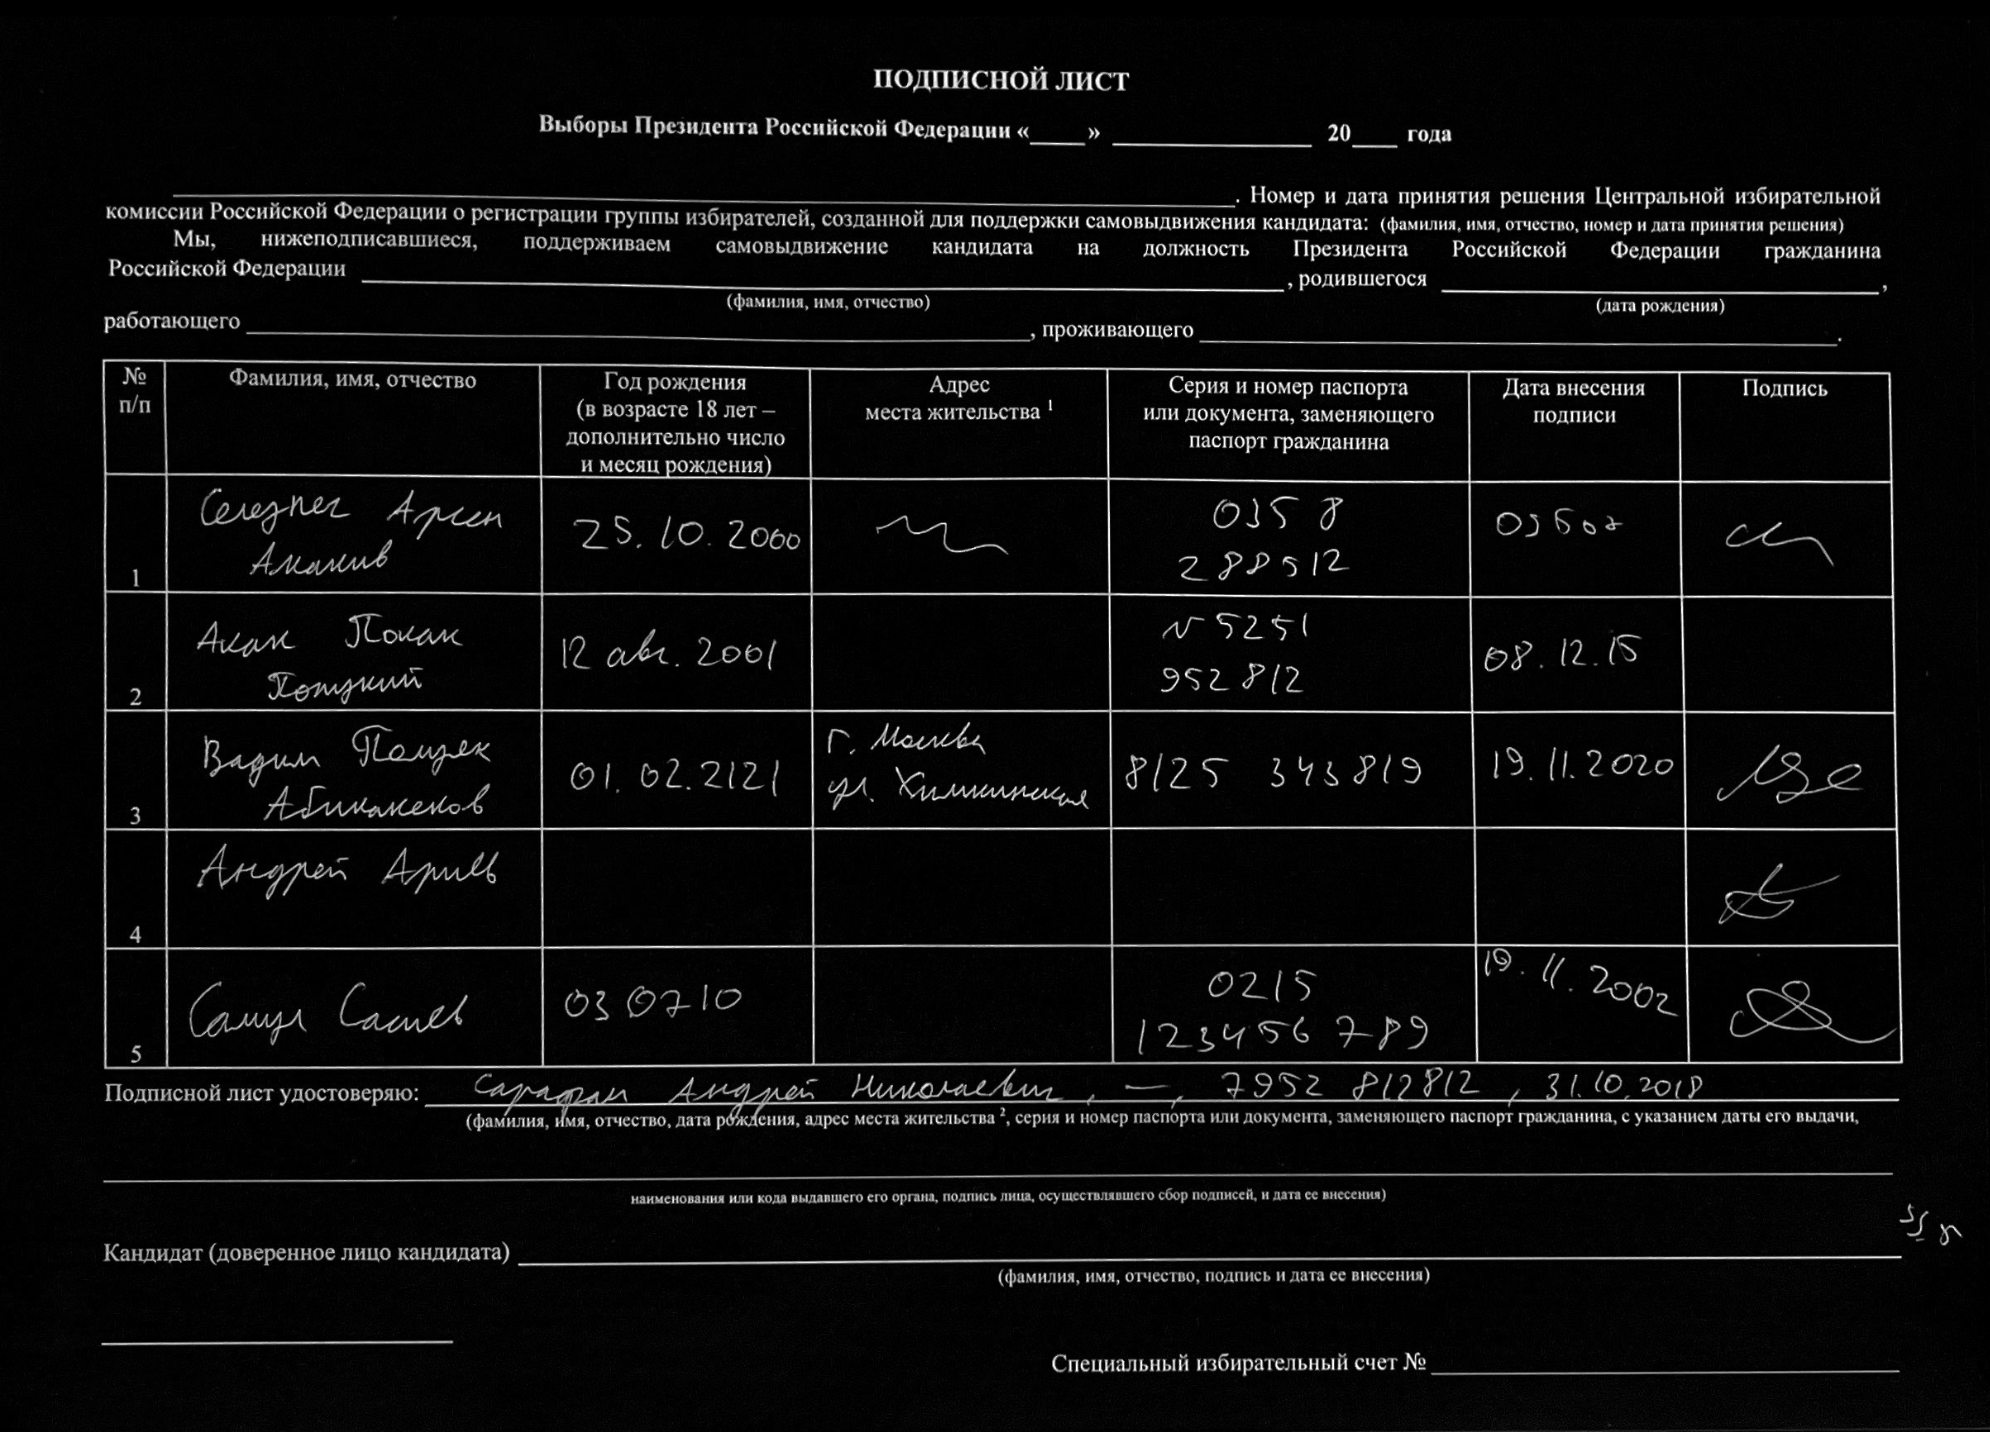 ПОДПИСНОЙ ЛИСТ
Выборы Президента Российской Федерации «____» ________________ 20____ года
. Номер и дата принятия решения Центральной избирательной
комиссии Российской Федерации о регистрации группы избирателей, созданной для поддержки самовыдвижения кандидата: (фамилия, имя, отчество, номер и дата принятия решения)
Мы, нижеподписавшиеся, поддерживаем самовыдвижение кандидата на должность Президента Российской Федерации гражданина
Российской Федерации ________________, родившегося ________________,
(фамилия, имя, отчество) (дата рождения)
работающего ________________, проживающего ________________.
№ п/п
Фамилия, имя, отчество
Год рождения
(в возрасте 18 лет –
дополнительно число
и месяц рождения)
Адрес
места жительства 1
Серия и номер паспорта
или документа, заменяющего
паспорт гражданина
Дата внесения
подписи
Подпись
1
Арсен
25.10.2000
288512
2
Акак
12 авг. 2001
N 5251
952812
08.12.15
3
Вадим
01.02.2121
г. Москва
ул. Химкинская
8125 343819
19.11.2020
4
Андрей
5
03 07 10
0215
123456 789
19.11.2002
Подписной лист удостоверяю: Сарафан Андрей Николаевич, —, 7952 812812, 31.10.2018
(фамилия, имя, отчество, дата рождения, адрес места жительства 2, серия и номер паспорта или документа, заменяющего паспорт гражданина, с указанием даты его выдачи,
наименования или кода выдавшего его органа, подпись лица, осуществлявшего сбор подписей, и дата ее внесения)
Кандидат (доверенное лицо кандидата)
(фамилия, имя, отчество, подпись и дата ее внесения)
Специальный избирательный счет №